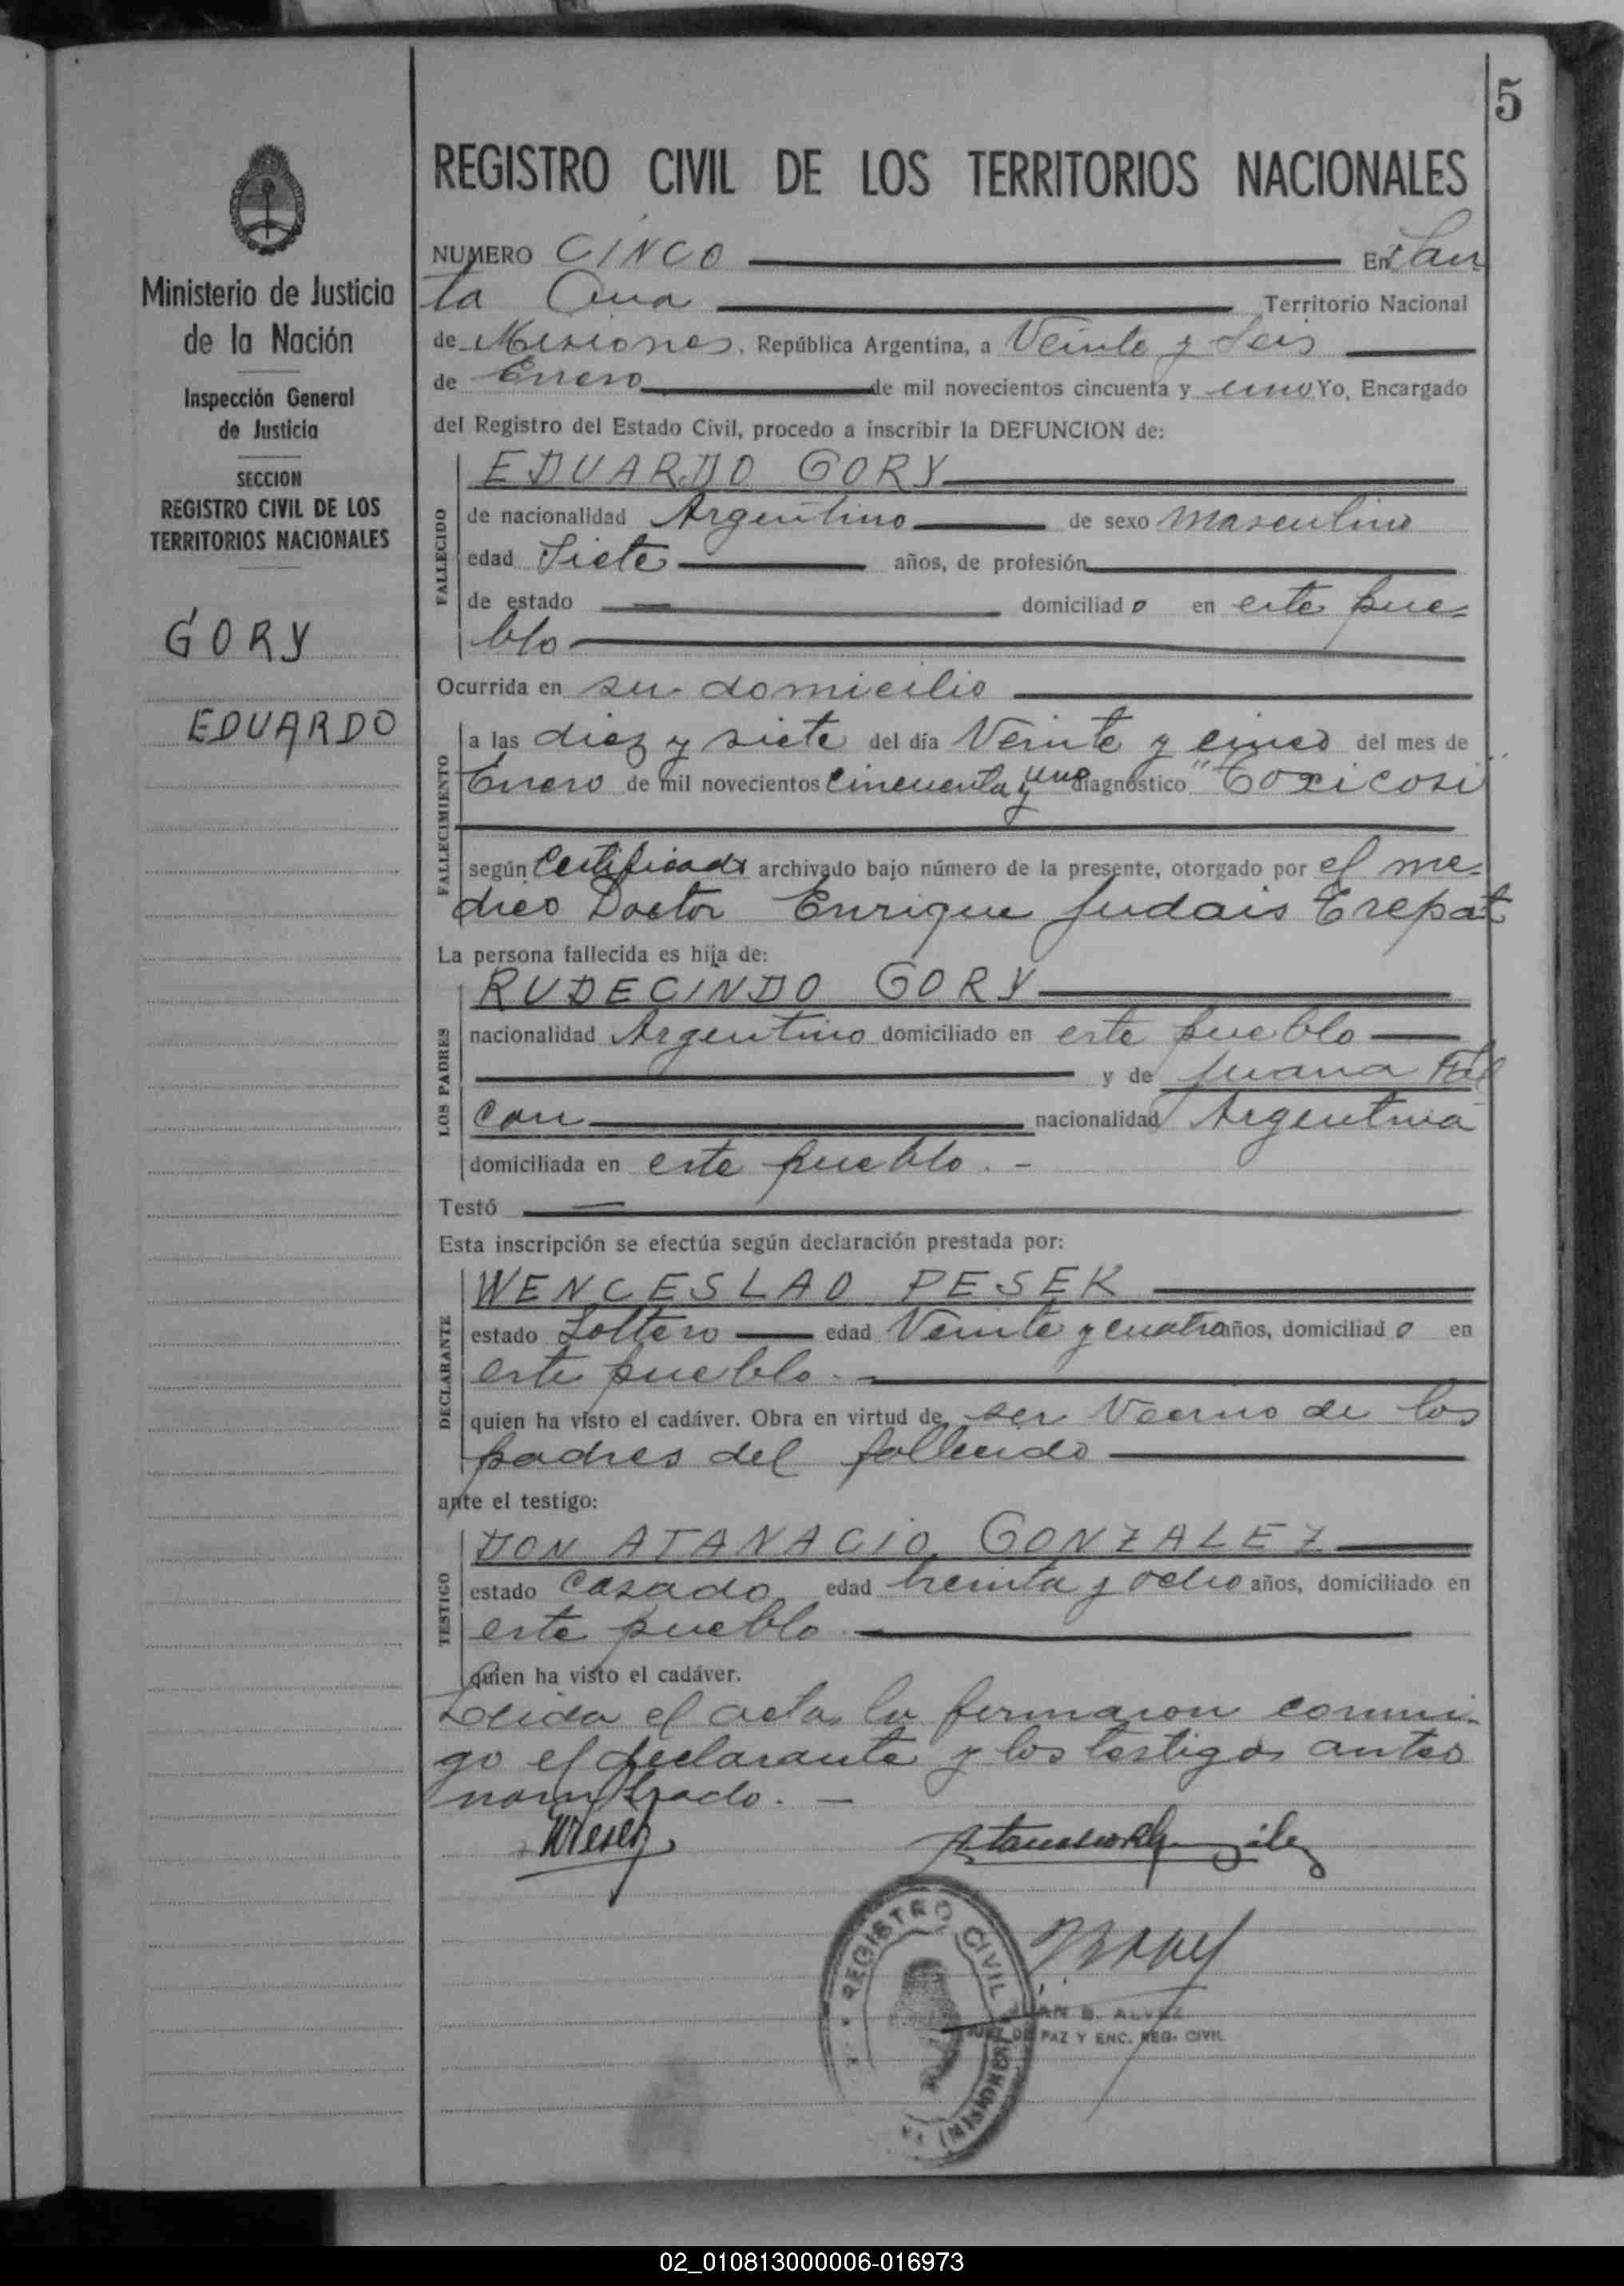 5
REGISTRO CIVIL DE LOS TERRITORIOS NACIONALES
Ministerio de Justicia
de la Nación
Inspección General
de Justicia
SECCION
REGISTRO CIVIL DE LOS
TERRITORIOS NACIONALES
GORY
EDUARDO
NUMERO CINCO En San
ta Ana Territorio Nacional
de Misiones, República Argentina, a Veinte y Seis
de Enero de mil novecientos cincuenta y uno Yo, Encargado
del Registro del Estado Civil, procedo a inscribir la DEFUNCION de:
FALLECIDO
EDUARDO GORY
de nacionalidad Argentino de sexo masculino
edad Siete años, de profesión
de estado domiciliado en este pue=
blo
Ocurrida en su domicilio
FALLECIMIENTO
a las diez y siete del día Veinte y cinco del mes de
Enero de mil novecientos cincuenta y uno diagnóstico "Toxicosi"
según Certificado archivado bajo número de la presente, otorgado por el me-
dico Doctor Enrique Judais Trepat
La persona fallecida es hija de:
LOS PADRES
RUDECINDO GORY
nacionalidad Argentino domiciliado en este pueblo
y de Juana Fal
con nacionalidad Argentina
domiciliada en este pueblo. -
Testó
Esta inscripción se efectúa según declaración prestada por:
DECLARANTE
WENCESLAO PESEK
estado Soltero edad Veinte y cuatro años, domiciliado en
este pueblo.-
quien ha visto el cadáver. Obra en virtud de ser Vecino de los
padres del fallecido
ante el testigo:
TESTIGO
DON ATANACIO GONZALEZ
estado Casado edad treinta y ocho años, domiciliado en
este pueblo.
quien ha visto el cadáver.
Leida el acta la firmaron conmi-
go el declarante y los testigos antes
nombrado. -
REGISTRO CIVIL
(MISIONES)
AN B. ALVEZ
JUEZ DE PAZ Y ENC. REG. CIVIL
02_010813000006-016973